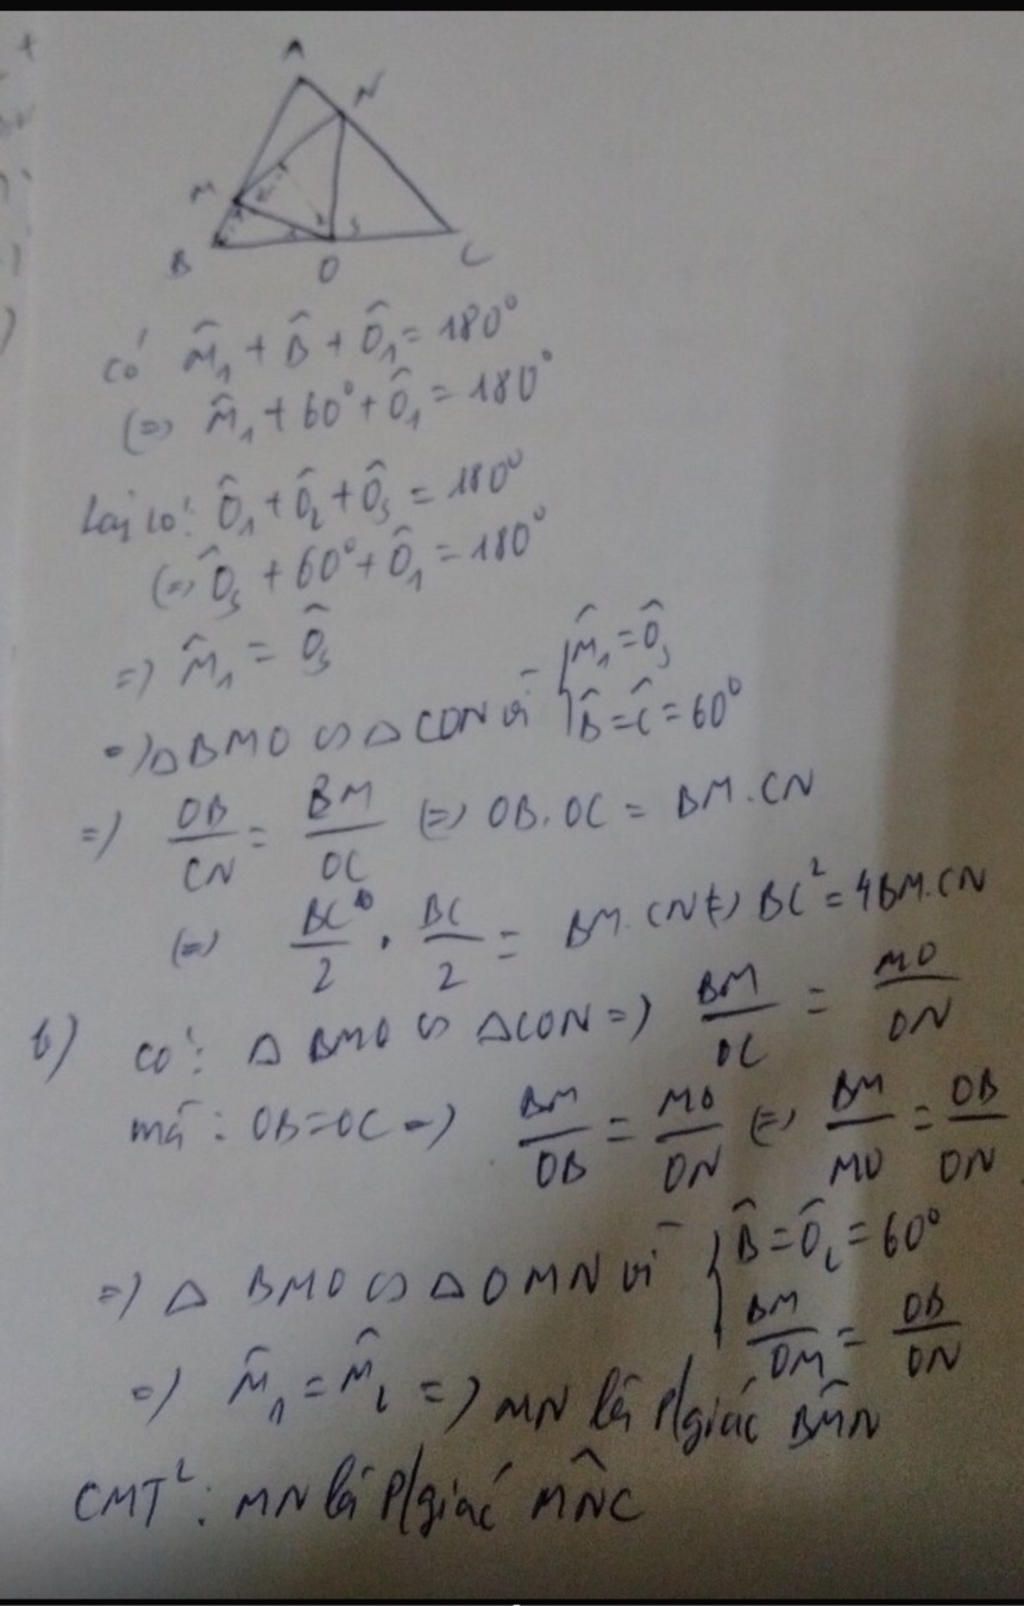 A
N
M
B
O
C
có M̂₁ + B̂ + Ô₁ = 180°
(=) M̂₁ + 60° + Ô₁ = 180°
Lại có: Ô₁ + Ô₂ + Ô₃ = 180°
(=) Ô₃ + 60° + Ô₁ = 180°
=) M̂₁ = Ô₃
=) △BMO ∽ △CON vì { M̂₁ = Ô₃ ; B̂ = Ĉ = 60°
=) OB/CN = BM/OC (=) OB.OC = BM.CN
(=) BC/2 . BC/2 = BM.CN (=) BC² = 4BM.CN
b) có: △BMO ∽ △CON =) BM/OC = MO/ON
mà: OB=OC =) BM/OB = MO/ON (=) BM/MO = OB/ON
=) △BMO ∽ △OMN vì { B̂ = Ô₂ = 60° ; BM/OM = OB/ON
=) M̂₁ = M̂₂ =) MN là P/giác BM̂N
CMT²: MN là P/giác MN̂C